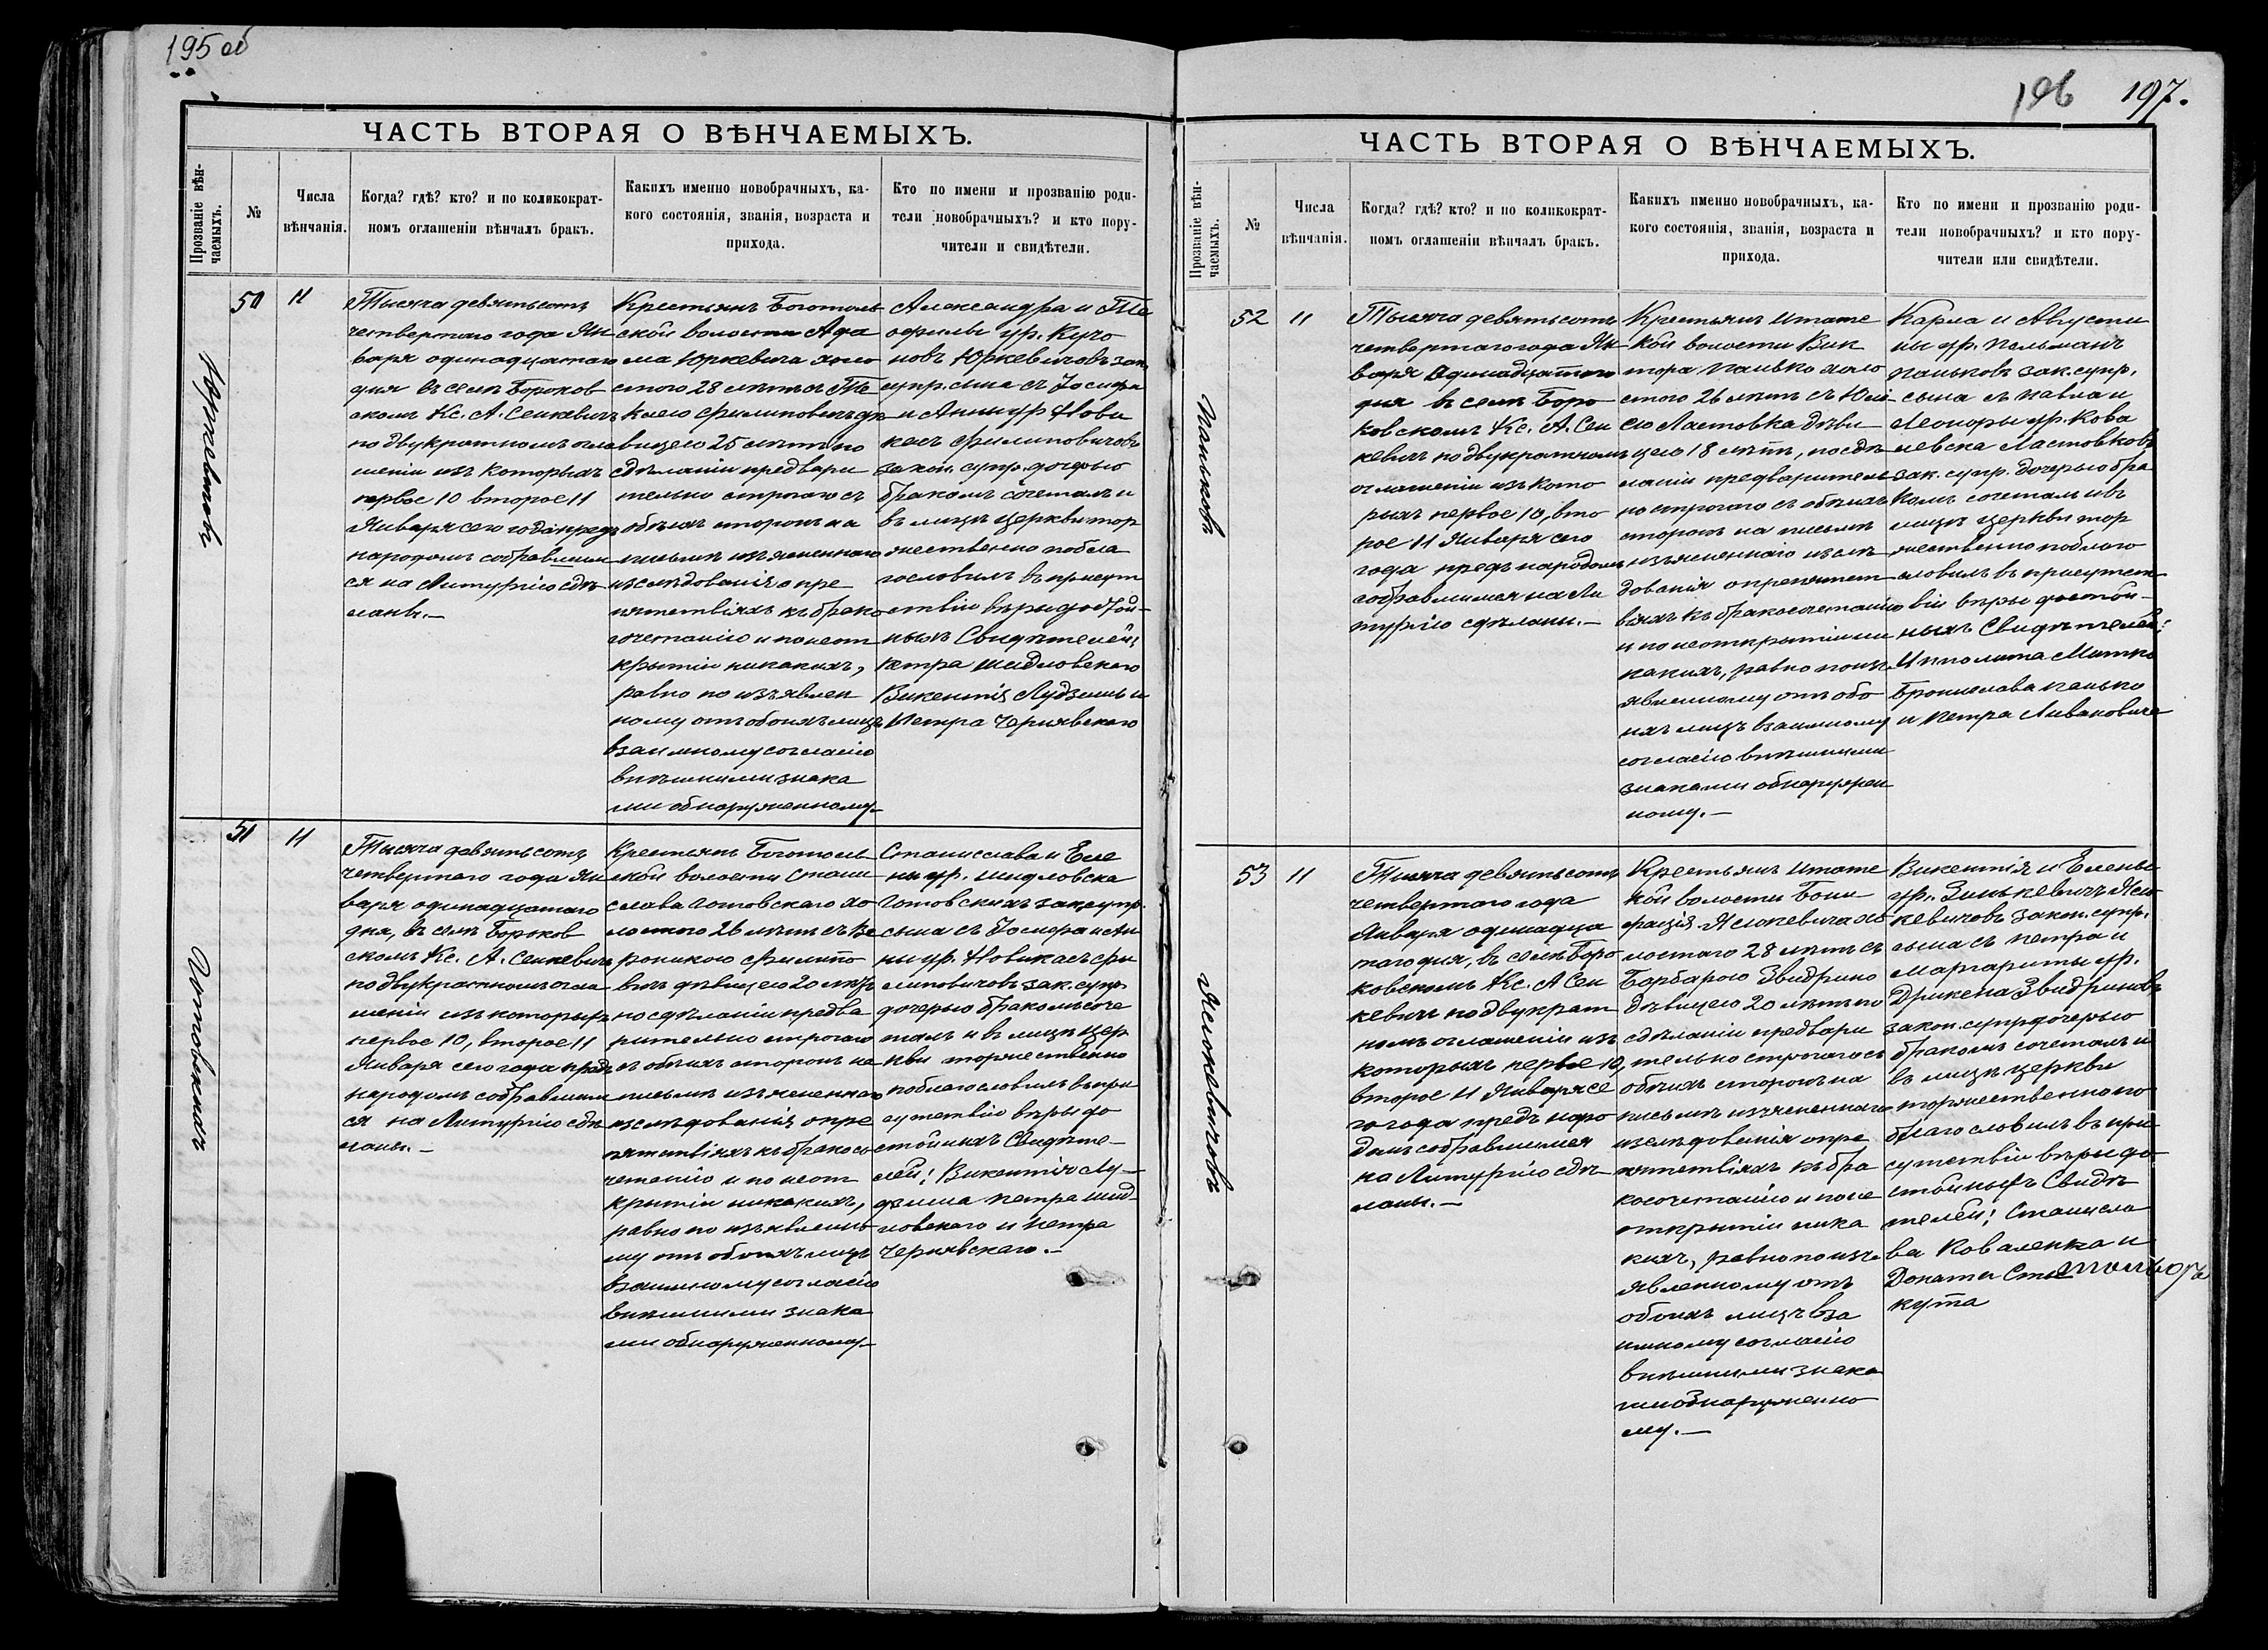 195 об
ЧАСТЬ ВТОРАЯ О ВѢНЧАЕМЫХЪ.
Прозваніе вѣн-
чаемыхъ.
№
Числа
вѣнчанія.
Когда? гдѣ? кто? и по коликократ-
номъ оглашеніи вѣнчалъ бракъ.
Какихъ именно новобрачныхъ, ка-
кого состоянія, званія, возраста и
прихода.
Кто по имени и прозванію роди-
тели новобрачныхъ? и кто пору-
чители и свидѣтели.
Юркевичъ
50
11
Тысяча девятьсотъ
четвертаго года Ян
варя одинадцатаго
дня въ селѣ Борков
скомъ Кс. А. Сенкевичъ
по двукратномъ огла
шеніи изъ которыхъ
первое 10 второе 11
Января сего года предъ
народомъ собравшим
ся на Литургію сдѣ
ланы.—
Крестьянъ Боготоль
ской волости Ада
ма Юркевича холо
стого 28 лѣтъ съ Те
клею Филиповичъ дѣ
вицею 25 лѣтъ по
сдѣланіи предвари
тельно строгаго съ
обѣихъ сторонъ на
письмѣ изъясненнаго
изслѣдованія о пре
пятствіяхъ къ брако
сочетанію и по неот
крытіи никакихъ,
равно по изъявлен
ному отъ обоихъ лицъ
взаимному согласію
внѣшними знака
ми обнаруженному.—
Александра и Те
офилы ур.
Юркевичовъ зак.
супр. сына съ Іосифа
и Анны ур. Нови
касъ Филиповичовъ
закон. супр. дочерью
бракомъ сочеталъ и
въ лицѣ церкви тор
жественно побла
гословилъ въ присут
ствіи вѣры достой-
ныхъ Свидѣтелей;
Петра Шидловскаго
Викентія Лудзиша и
Петра Чернявскаго
Готовскихъ
51
11
Тысяча девятьсотъ
четвертаго года Ян
варя одинадцатаго
дня, въ селѣ Борков
скомъ Кс. А. Сенкевичъ
по двукратномъ огла
шеніи изъ которыхъ
первое 10, второе 11
Января сего года предъ
народомъ собравшим
ся на Литургію сдѣ
ланы.—
Крестьянъ Боготоль
ской волости Стани
слава Готовскаго хо
лостого 26 лѣтъ съ Ве
роникою Филипо
вичъ дѣвицею 20 лѣтъ
по сдѣланіи предва
рительно строгаго
съ обѣихъ сторонъ на
письмѣ изъясненнаго
изслѣдованія о пре
пятствіяхъ къ бракосо
четанію и по неот
крытіи никакихъ,
равно по изъявленно
му отъ обоихъ лицъ
взаимному согласію
внѣшними знака
ми обнаруженному.—
Станислава и Еле
ны ур. Шидловска
Готовскихъ зак. супр.
сына съ Іосифа и Ан
ны ур. Новикасъ Фи
липовичовъ зак. супр.
дочерью бракомъ соче
талъ и въ лицѣ цер
кви торжественно
поблагословилъ въ при
сутствіи вѣры до
стойныхъ Свидѣте-
лей; Викентія Лу-
дзиша Петра Шид-
ловскаго и Петра
Чернявскаго.—
196 197.
ЧАСТЬ ВТОРАЯ О ВѢНЧАЕМЫХЪ.
Прозваніе вѣн-
чаемыхъ.
№
Числа
вѣнчанія.
Когда? гдѣ? кто? и по коликократ-
номъ оглашеніи вѣнчалъ бракъ.
Какихъ именно новобрачныхъ, ка-
кого состоянія, званія, возраста и
прихода.
Кто по имени и прозванію роди-
тели новобрачныхъ? и кто пору-
чители или свидѣтели.
Паньковъ
52
11
Тысяча девятьсотъ
четвертаго года Ян
варя Одинадцатаго
дня въ селѣ Бор
ковскомъ Кс. А. Сен
кевичъ по двукратномъ
оглашеніи изъ кото
рыхъ первое 10, вто
рое 11 Января сего
года предъ народомъ
собравшимся на Ли
тургію сдѣланы.—
Крестьянъ Итатс
кой волости Вик
тора Панько холо
стого 26 лѣтъ съ Юлі
ею Ластовка дѣви
цею 18 лѣтъ, по сдѣ
ланіи предваритель
но строгаго съ обѣихъ
сторонъ на письмѣ
изъясненнаго изслѣ
дованія о препятст
віяхъ къ бракосочетанію
и по неоткрытіи ни
какихъ, равно по изъ
явленному отъ обо
ихъ лицъ взаимному
согласію внѣшними
знаками обнаружен
ному.—
Карла и Августи
ны ур. Пельманъ
Паньковъ зак. супр.
сына съ Павла и
Леоноры ур. Кова
левска Ластовковъ
зак. супр. дочерью бра
комъ сочеталъ и въ
лицѣ церкви тор
жественно поблаго
словилъ въ присутст
віи вѣры достой-
ныхъ Свидѣтелей:
Ипполита Митко
Бронислава Панько
и Петра Ливановича
Ясюкевичовъ
53
11
Тысяча девятьсотъ
четвертаго года
Января одинадца
таго дня, въ селѣ Бор
ковскомъ Кс. А Сен
кевичъ по двукрат
номъ оглашеніи изъ
которыхъ первое 10,
второе 11 Января се
го года предъ наро
домъ собравшимся
на Литургію сдѣ
ланы.—
Крестьянъ Итатс
кой волости Бони
фація Ясюкевича хо
лостаго 28 лѣтъ съ
Барбарою Звидрино
дѣвицею 20 лѣтъ по
сдѣланіи предвари
тельно строгаго съ
обѣихъ сторонъ на
письмѣ изъясненнаго
изслѣдованія о пре
пятствіяхъ къ бра
косочетанію и по не
открытіи ника
кихъ, равно по изъ
явленному отъ
обоихъ лицъ вза
имному согласію
внѣшними знака
ми обнаруженно
му.—
Викентія и Елены
ур. Зинькевичъ Ясю
кевичовъ закон. супр.
сына съ Петра и
Маргариты ур.
Дрикена Звидриновъ
закон. супр. дочерью
бракомъ сочеталъ и
въ лицѣ церкви
торжественно по
благословилъ въ при
сутствіи вѣры до
стойныхъ Свидѣ
телей; Станисла
ва Коваленка и
Доната
кута